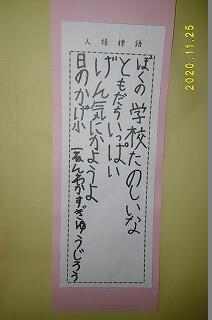 人権標語
ぼくの学校たのしいな
ともだちいっぱい
げん気にかようよ
日のかげ小
一年
2020.11.25